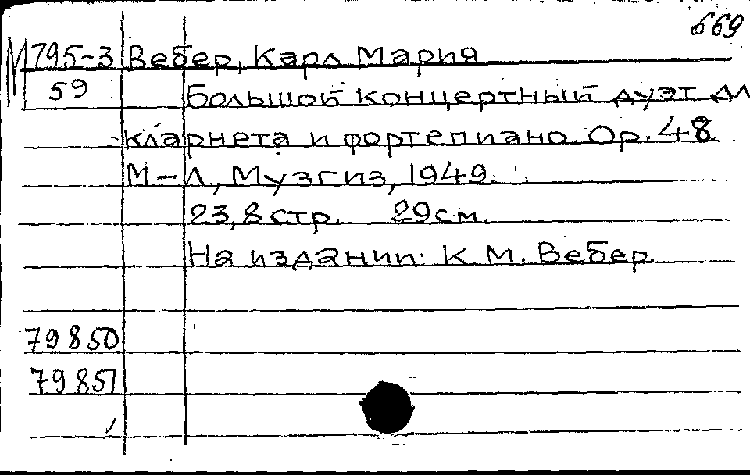 669
М795-3 Вебер, Карл Мария
59 Большой концертный дуэт дл
кларнета и фортепиано. Ор. 48
М-Л, Музгиз, 1949.
23, 8 стр. 29 см.
На издании: К. М. Вебер
79850
79851